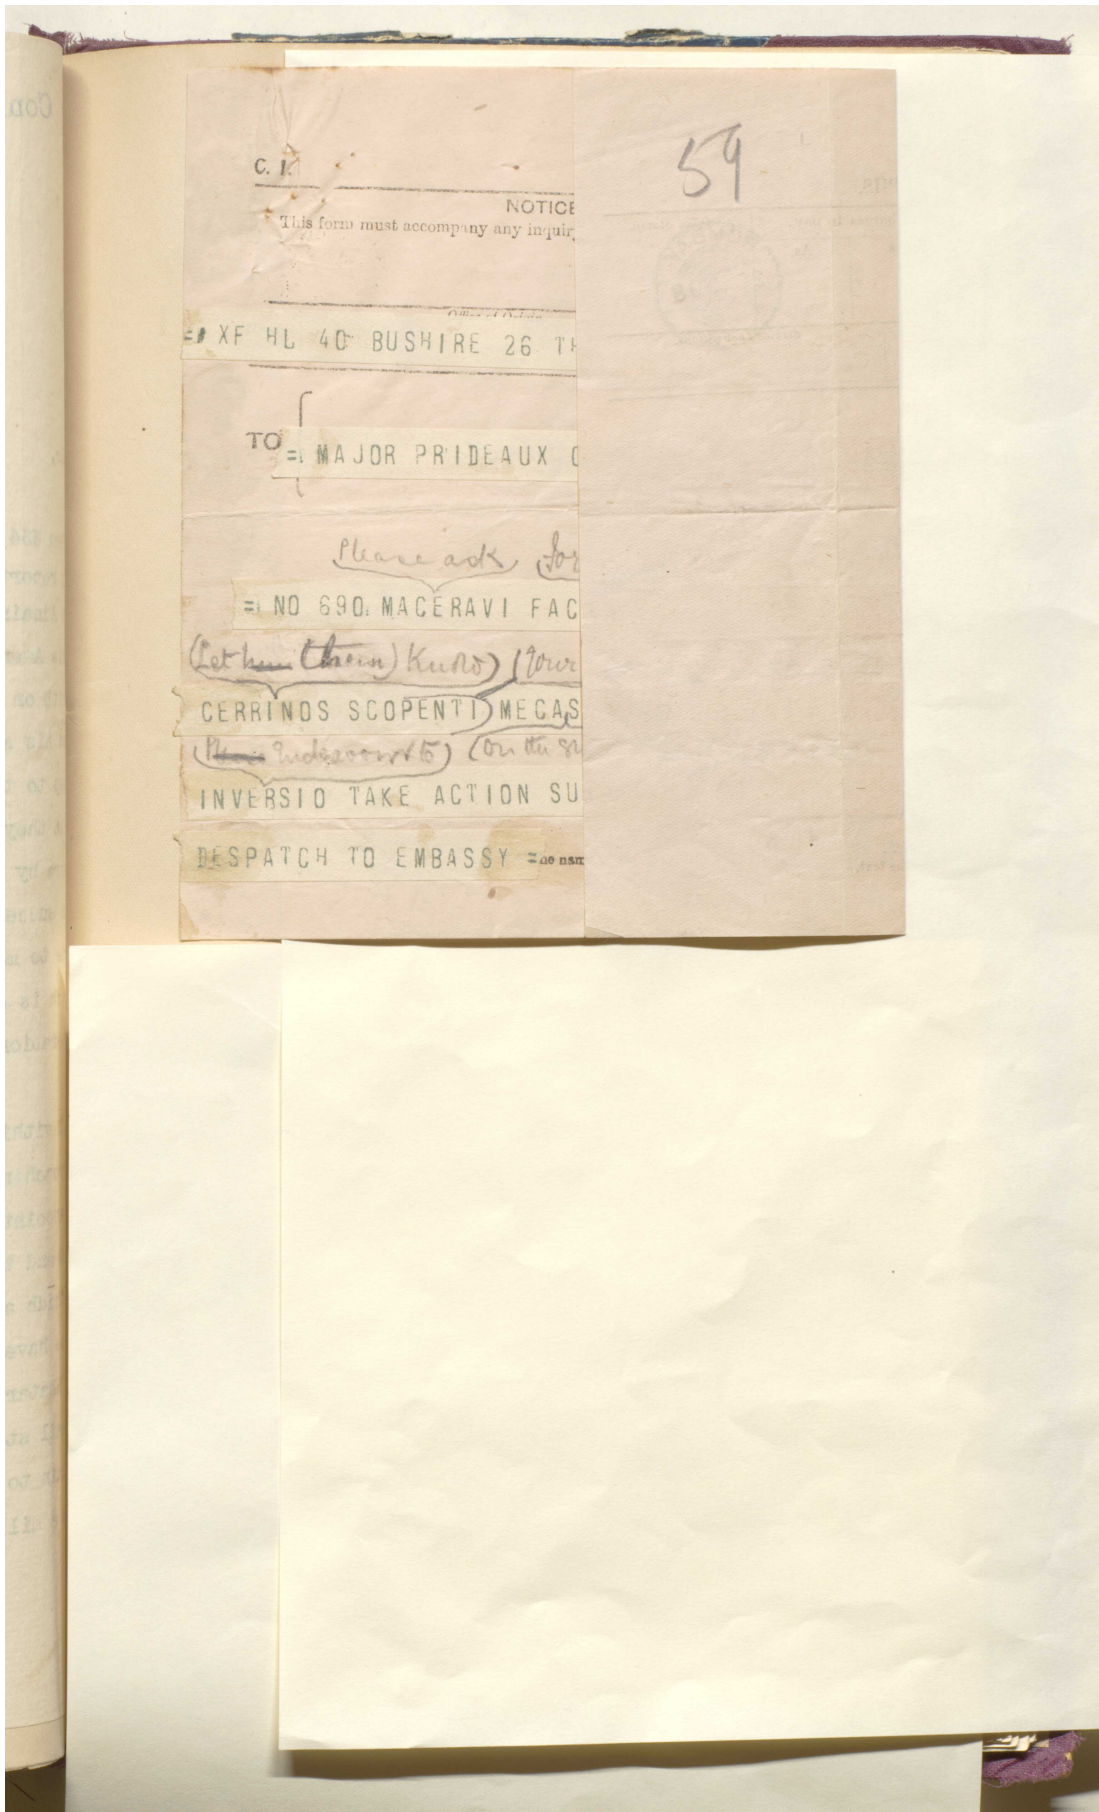 59
C. I.
NOTICE
This form must accompany any inquir
= XF HL 40 BUSHIRE 26 TH
TO
= MAJOR PRIDEAUX C
Please ask for
= NO 690 MACERAVI FAC
(Let him them) Know) (your
CERRINOS SCOPENTI MECAS
Endeavour to) (On the
INVERSIO TAKE ACTION SU
DESPATCH TO EMBASSY =he nam